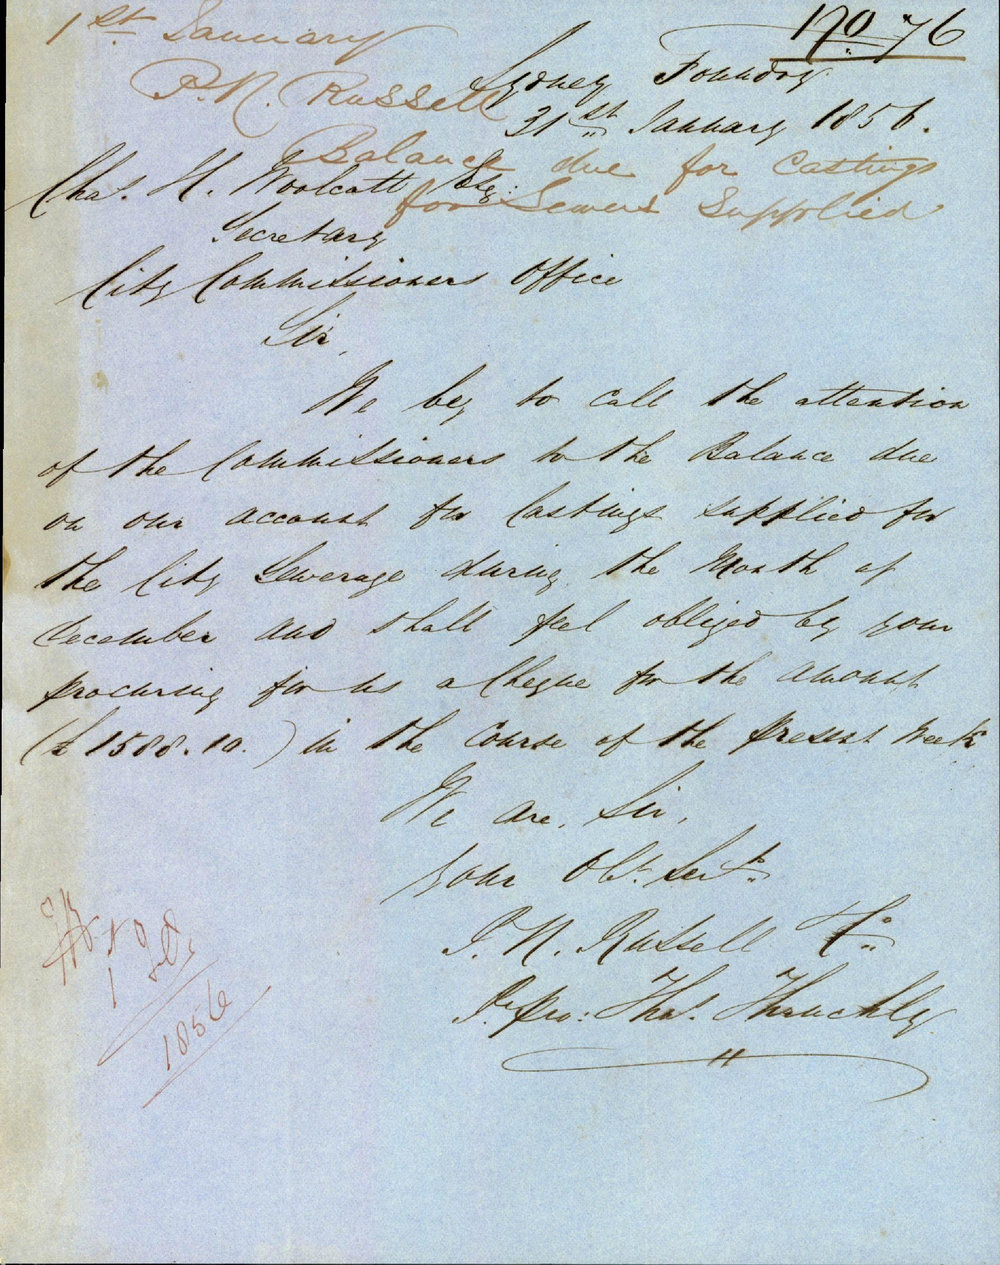 No. 76
1st January
P. N. Russell
Balance due for Castings
for Sewers Supplied
Sydney Foundry
31st January 1856.
Chas. H. Woolcott Esq:
Secretary
City Commissioners Office
Sir,
We beg to call the attention
of the Commissioners to the Balance due
on our account for Castings supplied for
the City Sewerage during the Month of
December and shall feel obliged by your
procuring for us a Cheque for the amount
(£1588.10.) in the Course of the present Week
We are, Sir,
your Obt. Servts.
P. N. Russell & Co.
P. pro: Thos.
1856